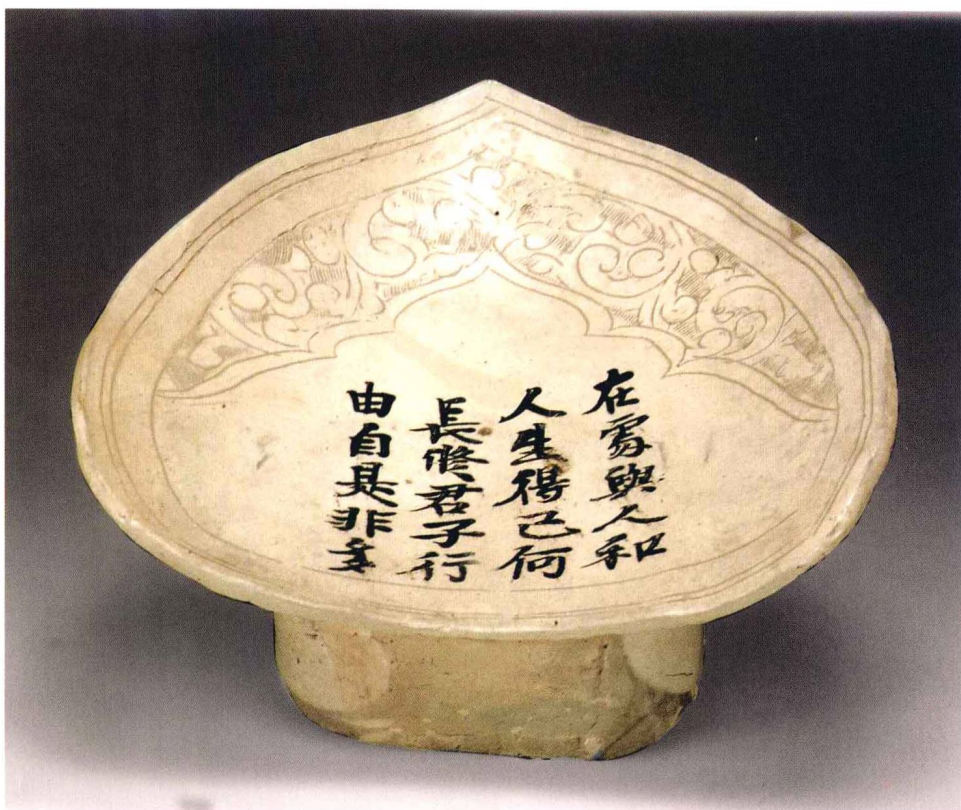 在處與人和
人生得己何
長修君子行
由自是非多